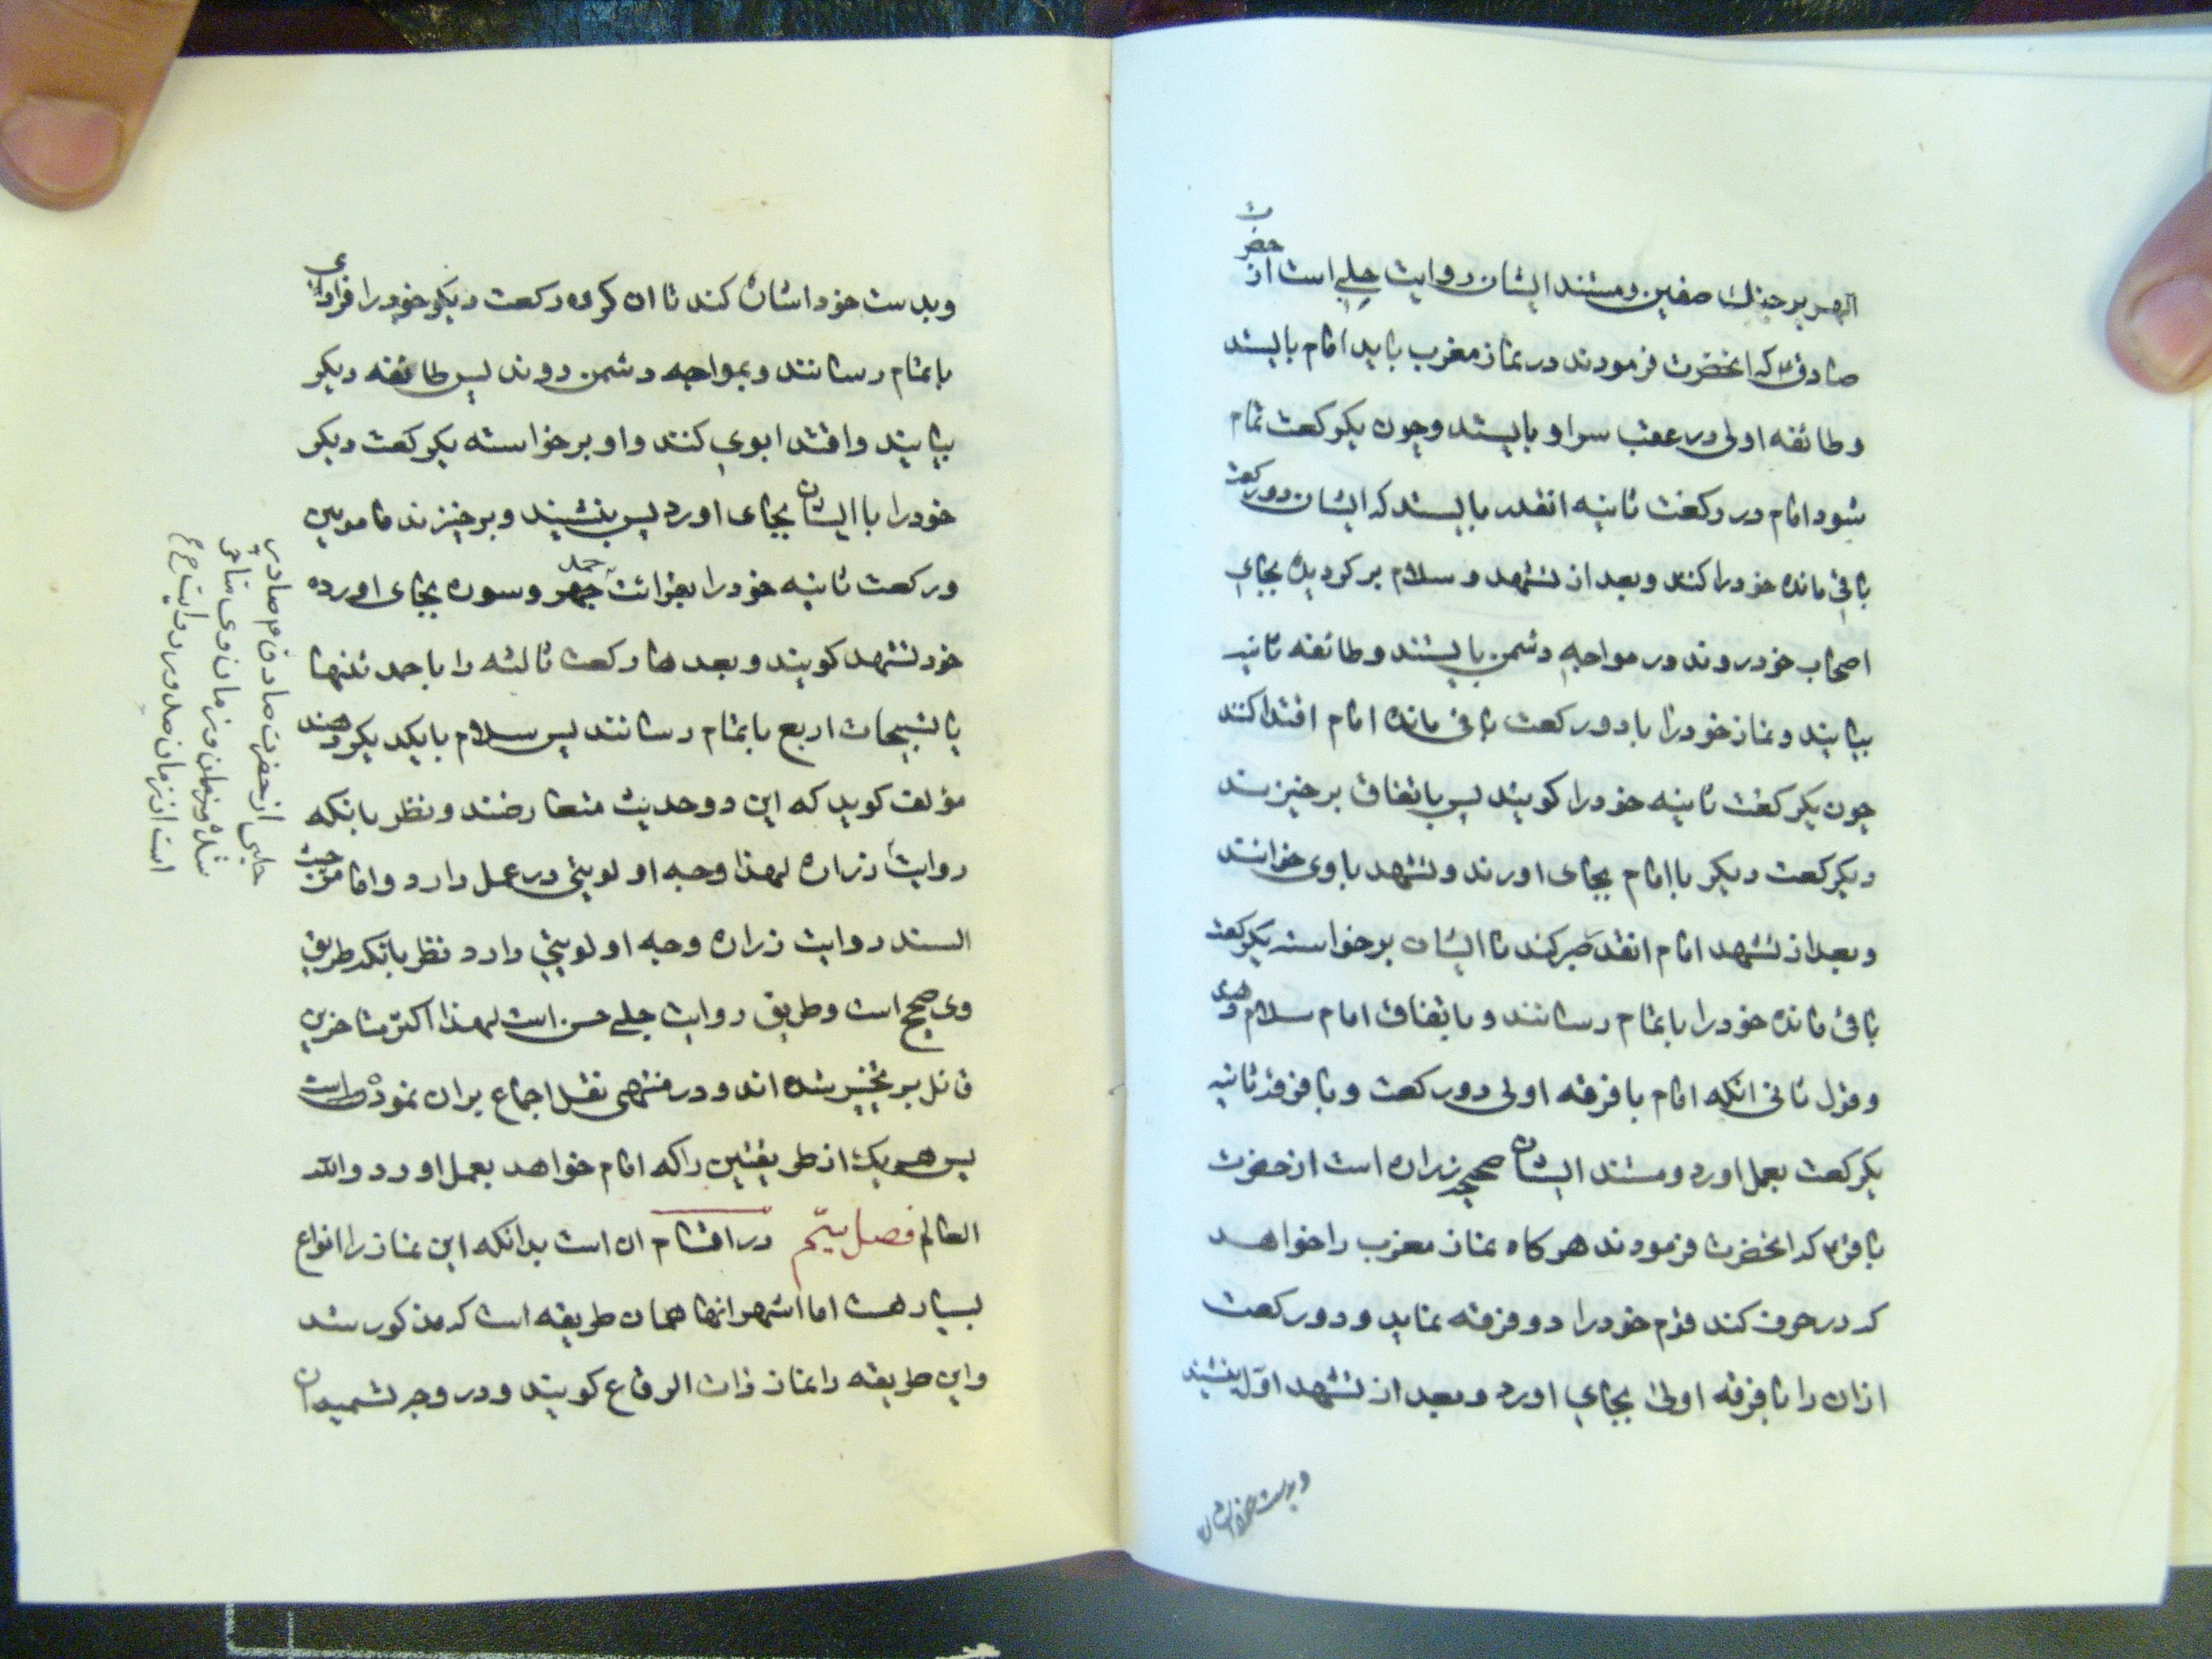 الهریر جنك صفین و مستند ایشان روایت حلبی است از حضرت
صادق ع که انحضرت فرمودند در نماز مغرب باید امام بایستد
و طائفه اولی در عقب سر او بایستد و چون یکرکعت تمام
شود امام در رکعت ثانیه انقدر بایستد که ایشان دو رکعت
باقی مانده خود را کنند و بعد از تشهد و سلام بر کردیده بجای
اصحاب خود روند در مواجهه دشمن بایستند و طائفه ثانیه
بیایند و نماز خود را با دو رکعت باقی مانده امام اقتدا کنند
چون یکرکعت ثانیه خود را کویند پس باتفاق برخیزند
و یکرکعت دیکر با امام بجای اورند و تشهد با وی خوانند
و بعد از تشهد امام انقدر صبر کند تا ایشان برخواسته یکرکعت
باقی مانده خود را باتمام رسانند و باتفاق امام سلام دهند
و قول ثانی انکه امام با فرقه اولی دو رکعت و با فرقه ثانیه
یکرکعت بعمل اورد و مستند ایشان صحیحه زراره است از حضرت
باقر ع که انحضرت فرمودند هرکاه نماز مغرب را خواهد
که در خوف کند قوم خود را دو فرقه نماید و دو رکعت
از ان را با فرقه اولی بجای اورد و بعد از تشهد اول بنشیند
و بدست خود اشان
و بدست خود اشان کند تا ان کروه رکعت دیکر خود را فرادی
باتمام رسانند و بمواجهه دشمن روند پس طائفه دیکر
بیایند و اقتدا بوی کنند و او برخواسته یکرکعت دیکر
خود را با ایشان بجای اورد پس بنشیند و برخیزند مامومین
و رکعت ثانیه خود را بقرائت حمد و سوره بجای اورده
خود تشهد کویند و بعدها رکعت ثالثه را با حمد تنها
یا تسبیحات اربع باتمام رسانند پس سلام با یکدیکر دهند
مؤلف کوید که این دو حدیث متعارضند و نظر بانکه
روایت زراره لهذا وجه اولویتی در عمل دارد و اما من جهة
السند روایت زراره وجه اولویتی دارد نظر بانکه طریق
وی صحیح است و طریق روایت حلبی حسن است لهذا اکثر متاخرین
قائل بر تخییر شده اند و در منتهی نقل اجماع بران نموده است
پس هر یک از طریقتین را که امام خواهد بعمل اورد والله
العالم فصل سیّم در اقسام ان است بدانکه این نماز را انواع
بسیار هست اما اشهر انها همان طریقه است که مذکور شد
و این طریقه را نماز ذات الرقاع کویند و در وجه تسمیه ان
حلبی از حضرت صادق ع صادر
است از زمان صدور روایت